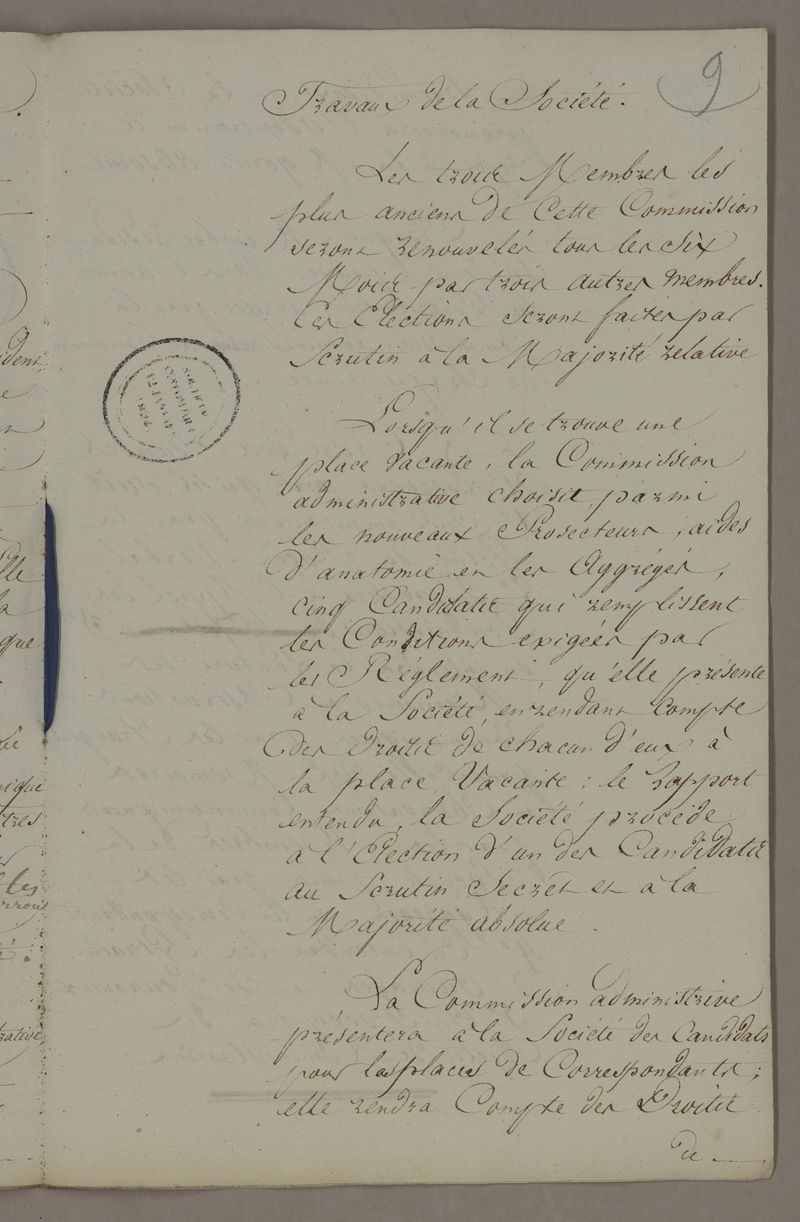 9
Travaux de la Société.
Les trois Membres les
plus anciens de Cette Commission
seront renouvelés tous les Six
Mois par trois autres membres.
Ces Elections seront faites par
Scrutin a la Majorité relative
Lorsqu'il se trouve une
place vacante, la Commission
administrative choisit parmi
les nouveaux Prosecteurs, aides
d'anatomie en les Aggrégés,
cinq Candidats qui remplissent
les Conditions exigées par
les Réglement, qu'elle présente
à la Société, en rendant Compte
des droits de chacun d'eux à
la place Vacante : le rapport
entendu, la Société procède
à l'Election d'un des Candidats
au Scrutin Secret et à la
Majorité absolue.
La Commission administrive
présentera à la Société des Candidats
pour las places de Correspondants ;
elle rendra Compte des Droits
de
SOCIÉTÉ
ANATOMIQUE
12 JANVIER